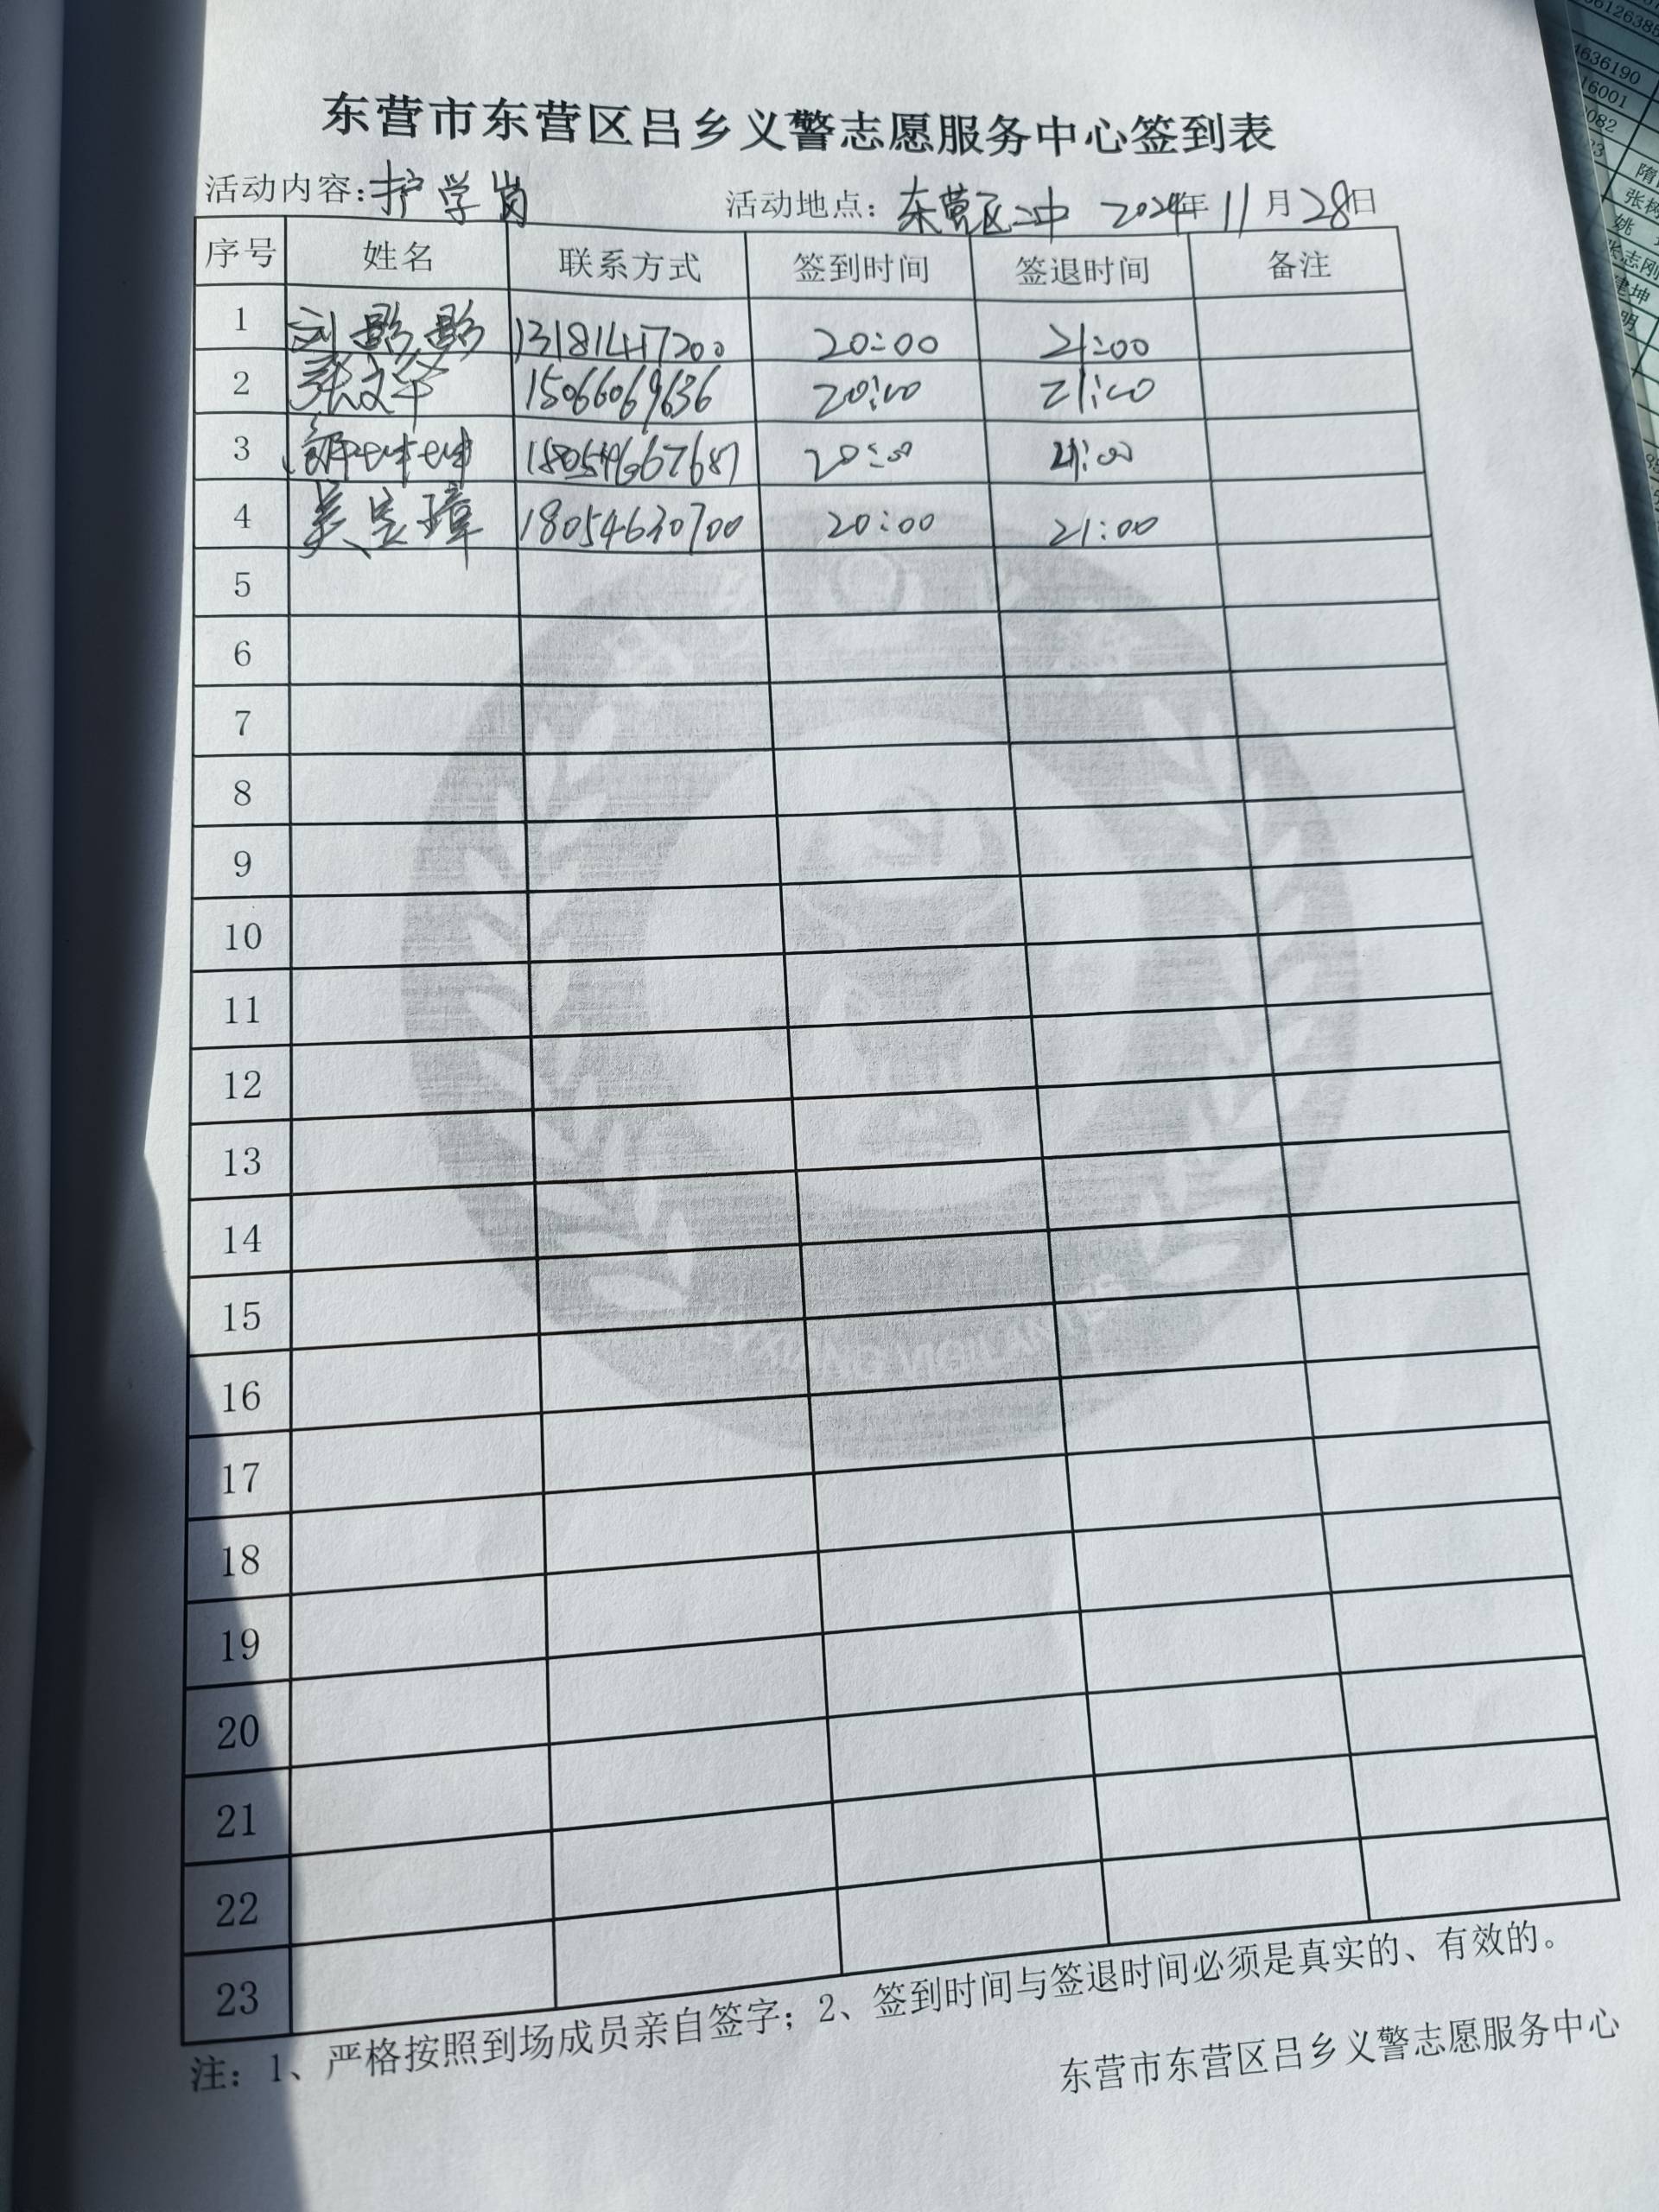 东营市东营区吕乡义警志愿服务中心签到表
活动内容：护学岗 活动地点：东营区二中 2024年11月28日
序号 姓名 联系方式 签到时间 签退时间 备注
1 刘影影 20:00 21:00
2 张文华 15066069636 20:00 21:00
3 坤坤 20:00 21:00
4 吴宝璋 18054630700 20:00 21:00
5
6
7
8
9
10
11
12
13
14
15
16
17
18
19
20
21
22
23
注：1、严格按照到场成员亲自签字；2、签到时间与签退时间必须是真实的、有效的。
东营市东营区吕乡义警志愿服务中心
4636190
16001
082
张志刚
建坤
明